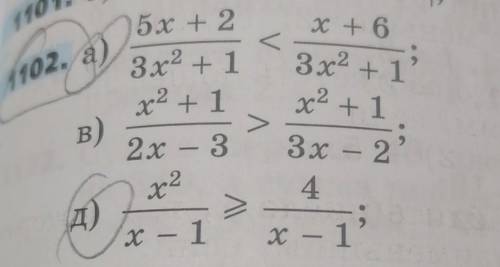 1101.
1102. а) (5x + 2)/(3x² + 1) < (x + 6)/(3x² + 1);
в) (x² + 1)/(2x − 3) > (x² + 1)/(3x − 2);
д) x²/(x − 1) ⩾ 4/(x − 1);